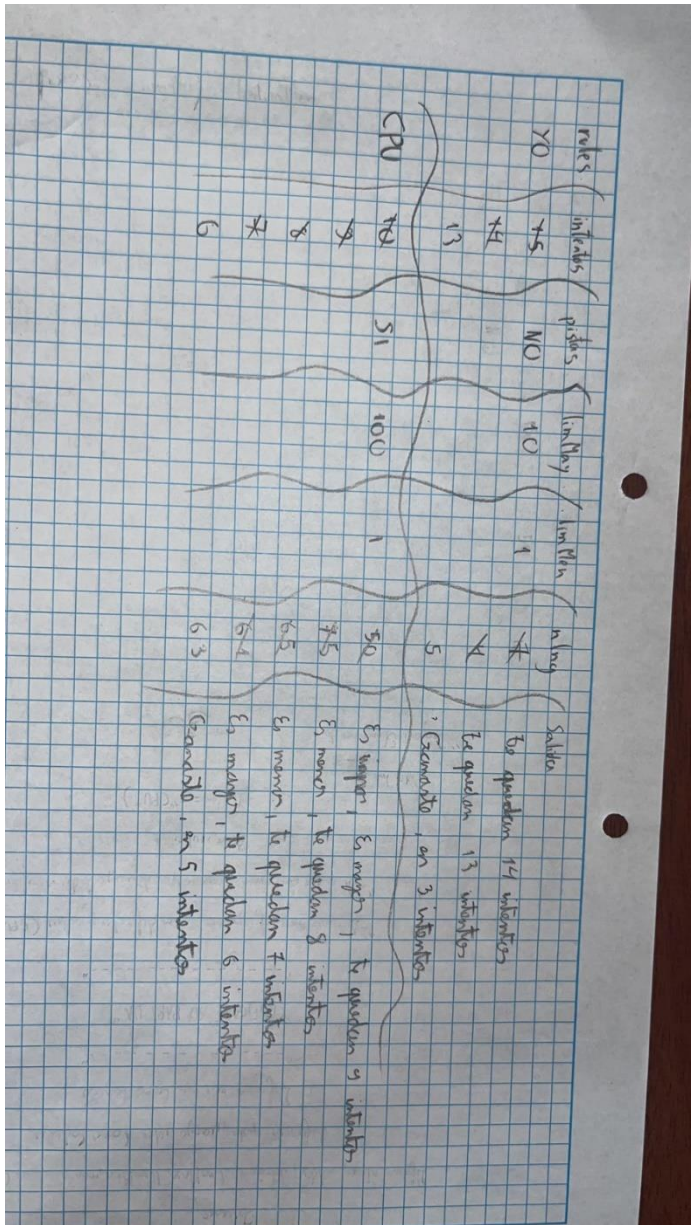 rules intentos pistas limMay limMen nIng Salida
YO 15 NO 10 1 7 te quedan 14 intentos
14 4 te quedan 13 intentos
13 5 Ganaste, en 3 intentos
CPU 10 SI 100 1 50 Es mayor, te quedan 9 intentos
9 75 Es menor, te quedan 8 intentos
8 65 Es menor, te quedan 7 intentos
7 61 Es mayor, te quedan 6 intentos
6 63 Ganaste, en 5 intentos